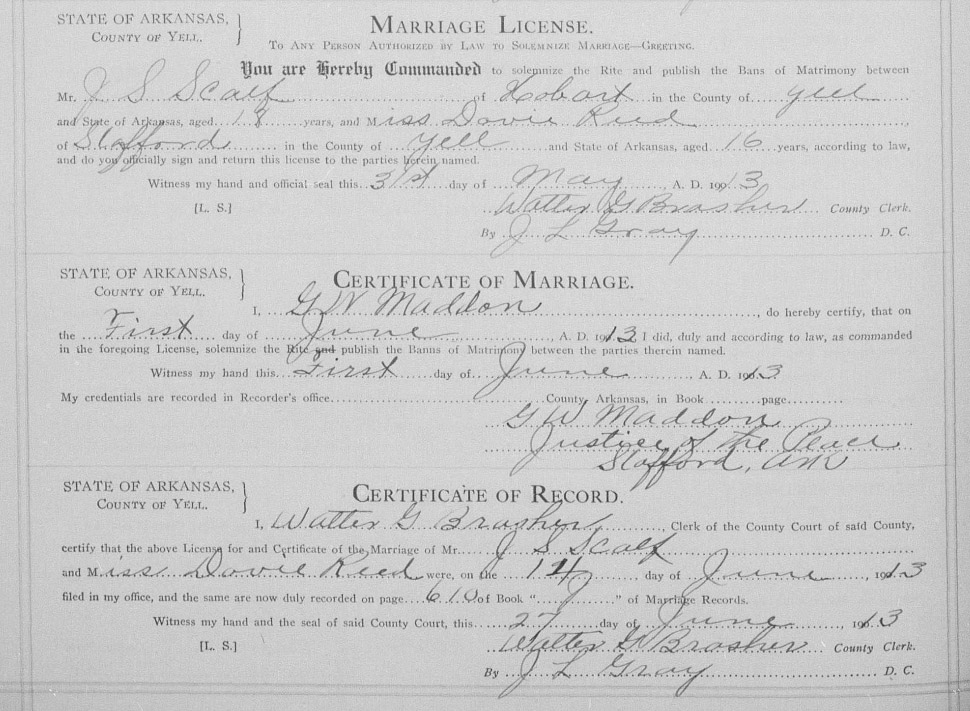 STATE OF ARKANSAS,
COUNTY OF YELL.
MARRIAGE LICENSE.
TO ANY PERSON AUTHORIZED BY LAW TO SOLEMNIZE MARRIAGE—GREETING.
You are Hereby Commanded to solemnize the Rite and publish the Bans of Matrimony between
Mr. J S Scalf of Hobart in the County of yell
and State of Arkansas, aged 18 years, and Miss Dovie Reed,
of Stafford in the County of yell and State of Arkansas, aged 16 years, according to law,
and do you officially sign and return this license to the parties herein named.
Witness my hand and official seal this 31st day of May, A. D. 1913
[L. S.] Walter G Brasher County Clerk.
By J L Gray D. C.
STATE OF ARKANSAS,
COUNTY OF YELL.
CERTIFICATE OF MARRIAGE.
I, G W Maddon, do hereby certify, that on
the First day of June, A. D. 1913, I did, duly and according to law, as commanded
in the foregoing License, solemnize the Rite and publish the Banns of Matrimony between the parties therein named.
Witness my hand this First day of June A. D. 1913
My credentials are recorded in Recorder's office County, Arkansas, in Book page
G W Maddon
Justice of the Peace
Stafford, Ark
STATE OF ARKANSAS,
COUNTY OF YELL.
CERTIFICATE OF RECORD.
I, Walter G Brasher, Clerk of the County Court of said County,
certify that the above License for and Certificate of the Marriage of Mr. J S Scalf
and Miss Dovie Reed were, on the day of June, 1913
filed in my office, and the same are now duly recorded on page 610 of Book " " of Marriage Records.
Witness my hand and the seal of said County Court, this 27 day of June, 1913
[L. S.] Walter G Brasher County Clerk.
By J L Gray D. C.